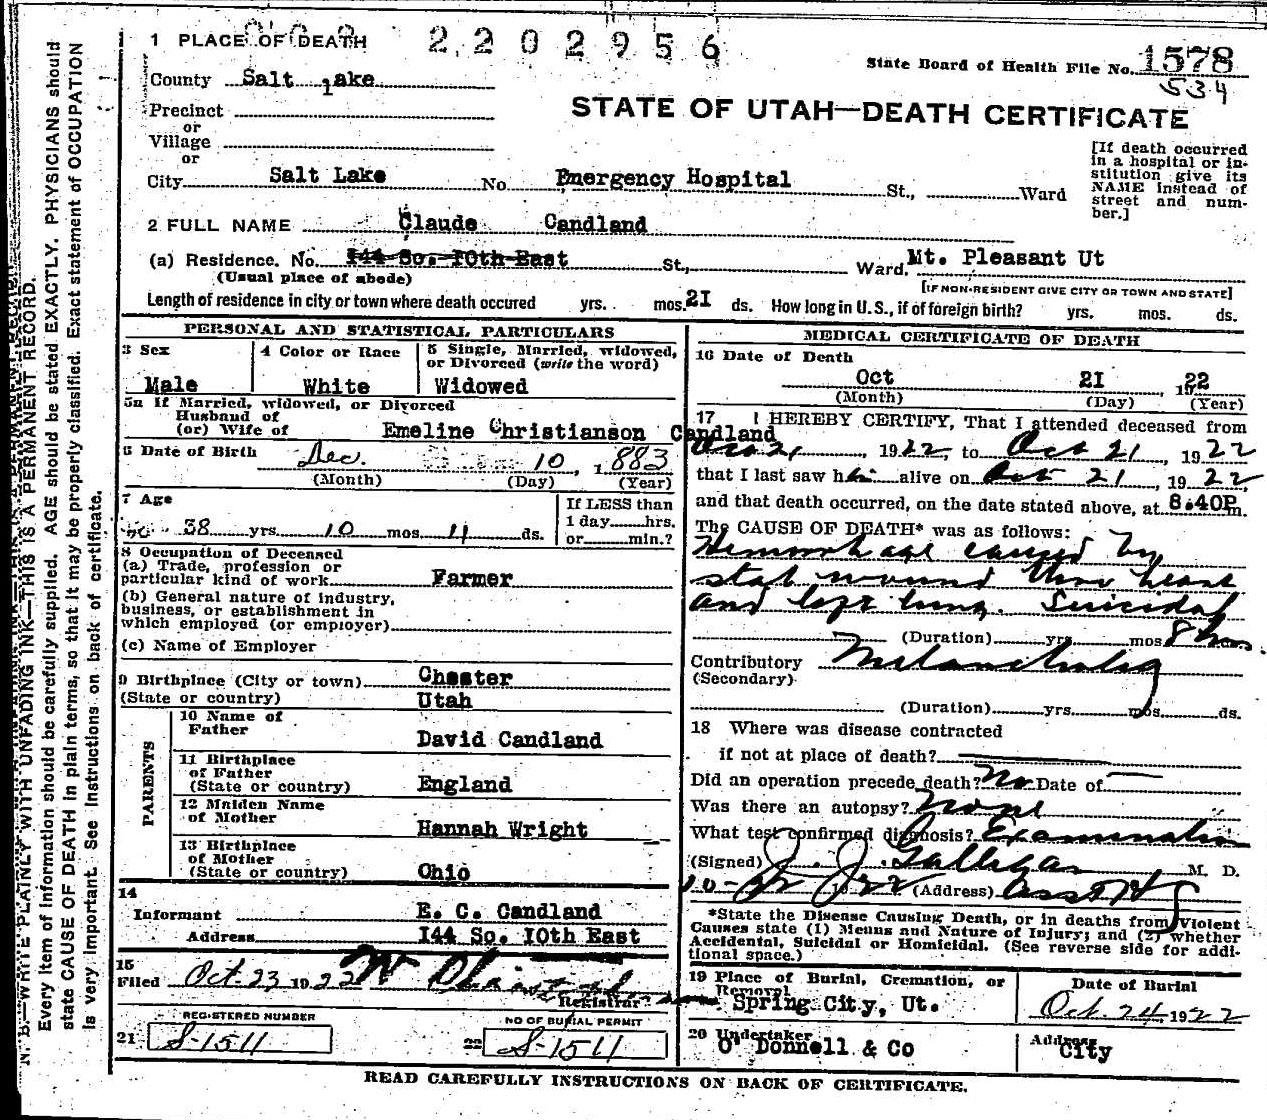 1 PLACE OF DEATH
2202956
State Board of Health File No. 1578
534
County Salt Lake
STATE OF UTAH—DEATH CERTIFICATE
Precinct
or
Village
or
City Salt Lake No. Emergency Hospital St., Ward
[If death occurred
in a hospital or in-
stitution give its
NAME instead of
street and num-
ber.]
2 FULL NAME Claude Candland
(a) Residence. No. 144 So. 10th East St., Ward. Mt. Pleasant Ut
(Usual place of abode)
[IF NON-RESIDENT GIVE CITY OR TOWN AND STATE]
Length of residence in city or town where death occured yrs. mos. 21 ds. How long in U.S., if of foreign birth? yrs. mos. ds.
PERSONAL AND STATISTICAL PARTICULARS
3 Sex
Male
4 Color or Race
White
5 Single, Married, widowed,
or Divorced (write the word)
Widowed
5a If Married, widowed, or Divorced
Husband of
(or) Wife of Emeline Christianson Candland
6 Date of Birth Dec. 10, 1883
(Month) (Day) (Year)
7 Age
38 yrs. 10 mos. 11 ds.
If LESS than
1 day hrs.
or min.?
8 Occupation of Deceased
(a) Trade, profession or
particular kind of work Farmer
(b) General nature of industry,
business, or establishment in
which employed (or employer)
(c) Name of Employer
9 Birthplace (City or town) Chester
(State or country) Utah
PARENTS
10 Name of
Father David Candland
11 Birthplace
of Father
(State or country) England
12 Maiden Name
of Mother Hannah Wright
13 Birthplace
of Mother
(State or country) Ohio
14
Informant E. C. Candland
Address 144 So. 10th East
15
Filed Oct. 23 1922
Registrar
REGISTERED NUMBER
21 S-1511
NO OF BURIAL PERMIT
22 S-1511
MEDICAL CERTIFICATE OF DEATH
16 Date of Death
Oct 21, 1922
(Month) (Day) (Year)
17 I HEREBY CERTIFY, That I attended deceased from
Oct 21, 1922, to Oct 21, 1922
that I last saw him alive on Oct 21, 1922,
and that death occurred, on the date stated above, at 8.40P m.
The CAUSE OF DEATH* was as follows:
Hemorrhage caused by
stab wound thru heart
and left lung. Suicidal
(Duration) yrs. mos. 8 hrs.
Contributory Melancholia
(Secondary)
(Duration) yrs. mos. ds.
18 Where was disease contracted
if not at place of death?
Did an operation precede death? No Date of
Was there an autopsy? None
What test confirmed diagnosis? Examination
(Signed) J. J. Galligan M. D.
10-22 1922 (Address)
*State the Disease Causing Death, or in deaths from Violent
Causes state (1) Means and Nature of Injury; and (2) whether
Accidental, Suicidal or Homicidal. (See reverse side for addi-
tional space.)
19 Place of Burial, Cremation, or
Removal
Spring City, Ut.
Date of Burial
Oct. 24, 1922
20 Undertaker
O'Donnell & Co
Address
City
READ CAREFULLY INSTRUCTIONS ON BACK OF CERTIFICATE.
N. B.—WRITE PLAINLY WITH UNFADING INK—THIS IS A PERMANENT RECORD.
Every item of information should be carefully supplied. AGE should be stated EXACTLY. PHYSICIANS should
state CAUSE OF DEATH in plain terms, so that it may be properly classified. Exact statement of OCCUPATION
is very important. See instructions on back of certificate.